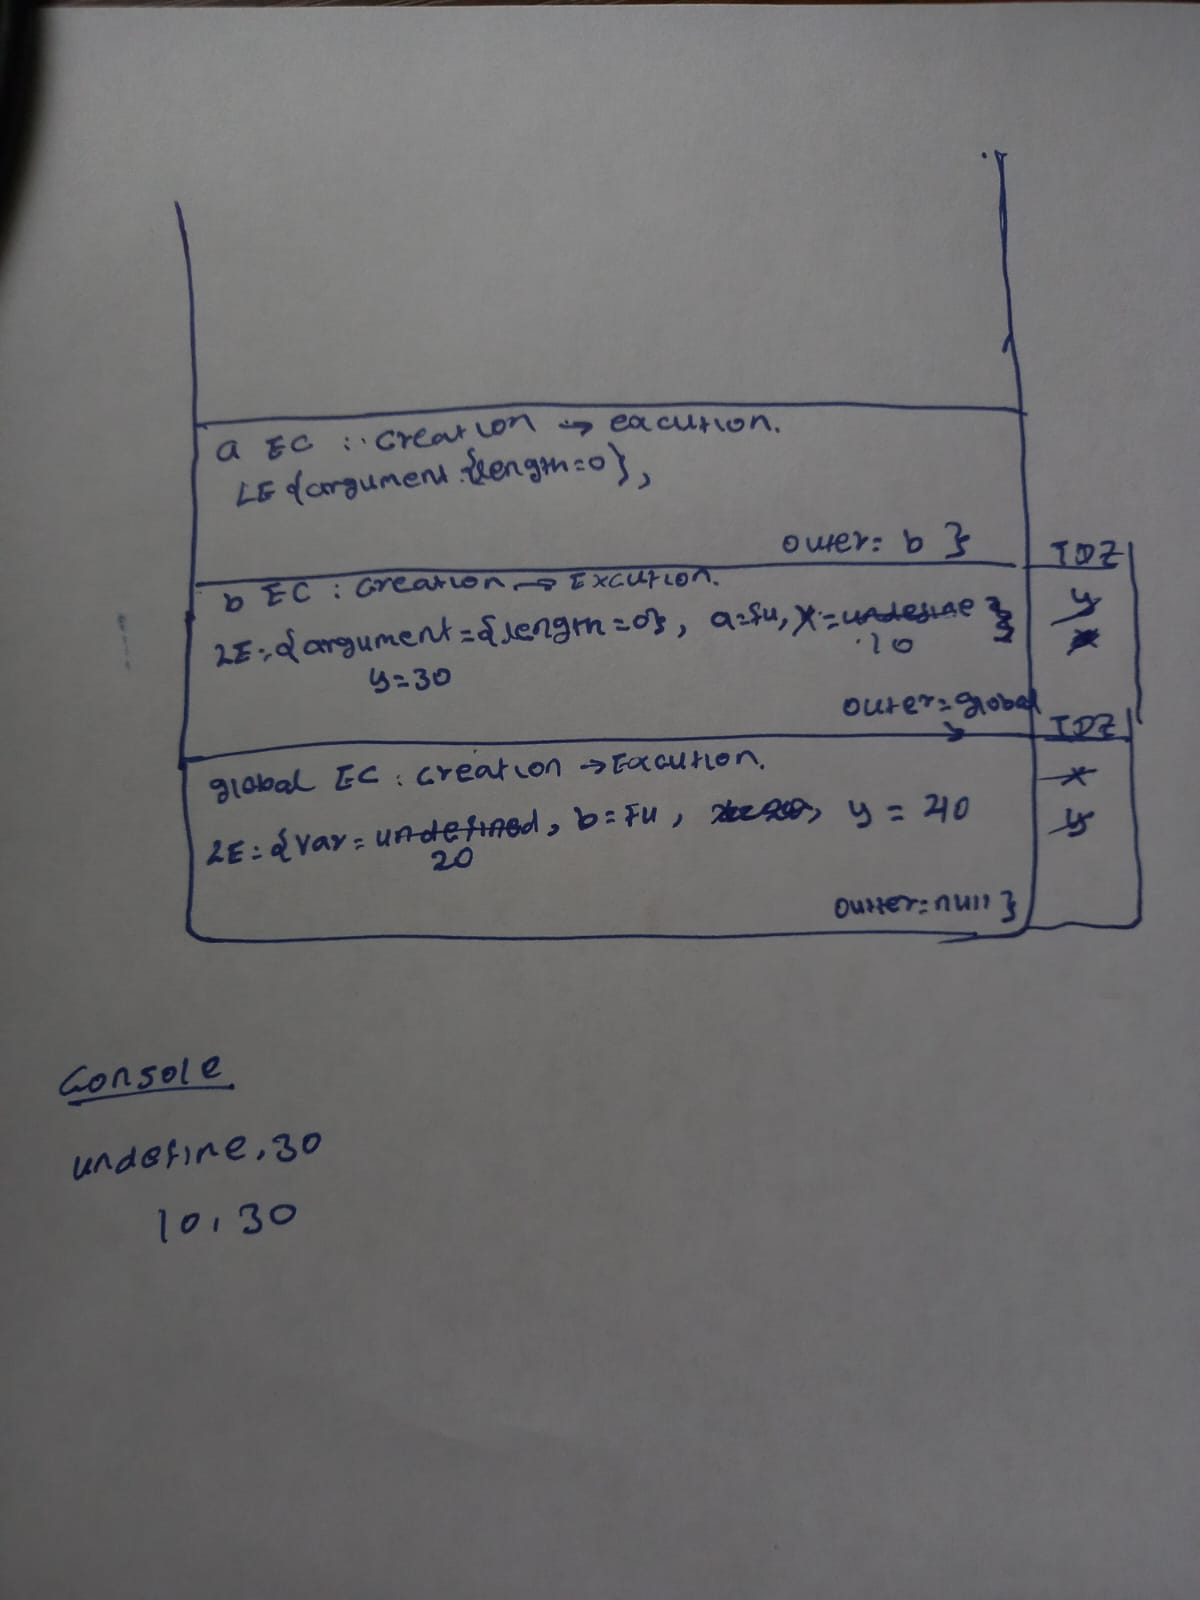 a EC : creation → eacution.
LE {argument :{length=0},
outer= b }
TDZ
b EC : creation → Excution.
y
LE:{argument={length=0}, a=fu, x=undefine }
10
y=30
outer=global
TDZ
global EC : creation → Eacution.
x
LE:{var= undefined, b=fu, y = 40
y
20
outter=null }
Console
undefine, 30
10, 30